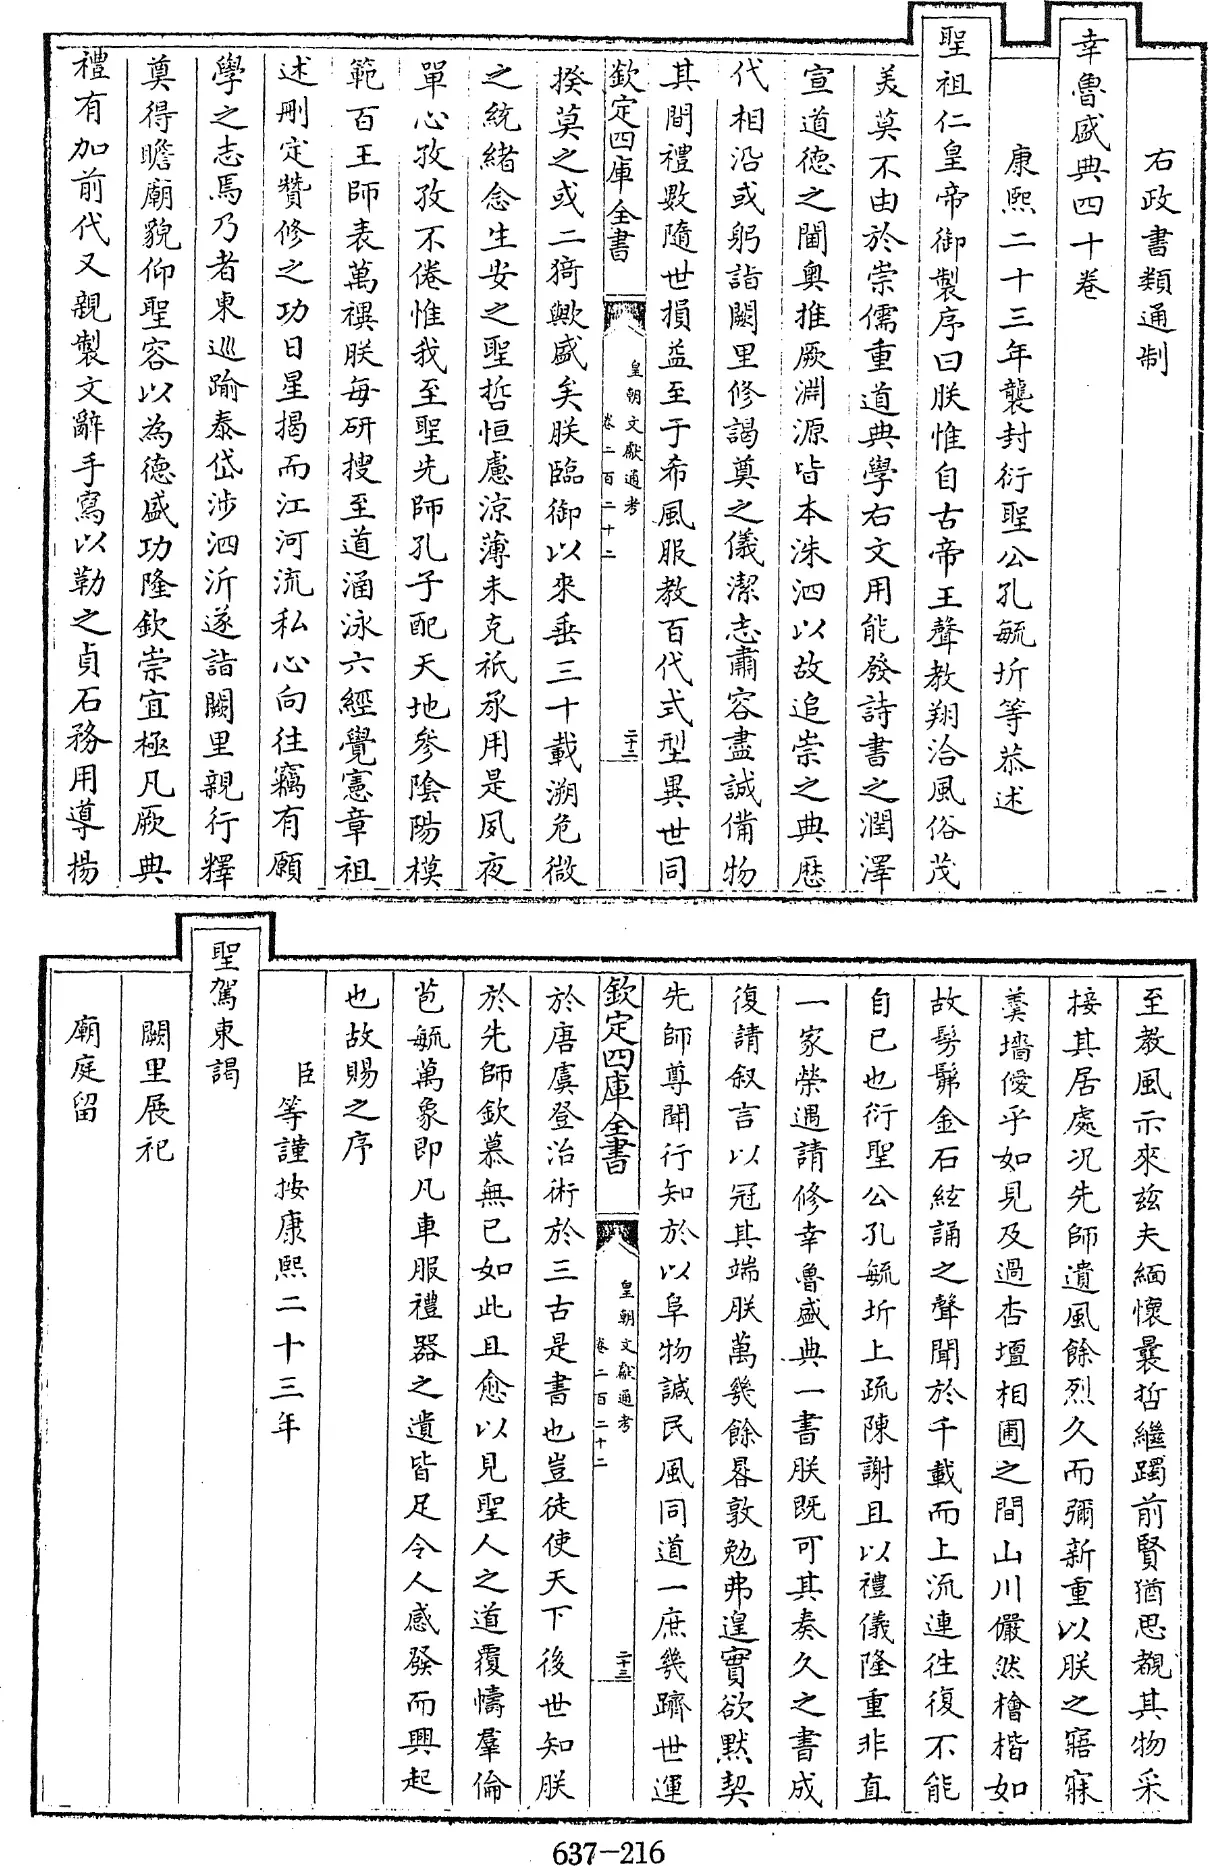 右政書類通制
幸魯盛典四十卷
康熙二十三年襲封衍聖公孔毓圻等恭述
聖祖仁皇帝御製序曰朕惟自古帝王聲教翔洽風俗茂
美莫不由於崇儒重道典學右文用能發詩書之潤澤
宣道德之閫奥推厥淵源皆本洙泗以故追崇之典歷
代相沿或躬詣闕里修謁奠之儀潔志肅容盡誠備物
其間禮數隨世損益至于希風服教百代式型異世同
欽定四庫全書
皇朝文獻通考
卷二百二十二
二十二
揆莫之或二猗歟盛矣朕臨御以來垂三十載溯危微
之統緒念生安之聖哲恒慮涼薄未克祇承用是夙夜
單心孜孜不倦惟我至聖先師孔子配天地參陰陽模
範百王師表萬禩朕每研搜至道涵泳六經覺憲章祖
述刪定贊修之功日星揭而江河流私心向往竊有願
學之志焉乃者東巡踰泰岱涉泗沂遂詣闕里親行釋
奠得瞻廟貌仰聖容以為德盛功隆欽崇宜極凡厥典
禮有加前代又親製文辭手寫以勒之貞石務用導揚
至教風示來兹夫緬懷曩哲繼躅前賢猶思覩其物采
接其居處况先師遺風餘烈久而彌新重以朕之寤寐
羹墻僾乎如見及過杏壇相圃之間山川儼然檜楷如
故髣髴金石絃誦之聲聞於千載而上流連往復不能
自已也衍聖公孔毓圻上疏陳謝且以禮儀隆重非直
一家榮遇請修幸魯盛典一書朕既可其奏久之書成
復請叙言以冠其端朕萬幾餘晷敦勉弗遑實欲默契
先師尊聞行知於以阜物諴民風同道一庶幾躋世運
欽定四庫全書
皇朝文獻通考
卷二百二十二
二十三
於唐虞登治術於三古是書也豈徒使天下後世知朕
於先師欽慕無已如此且愈以見聖人之道覆幬羣倫
苞毓萬象即凡車服禮器之遺皆足令人感發而興起
也故賜之序
臣等謹按康熙二十三年
聖駕東謁
闕里展祀
廟庭留
637-216